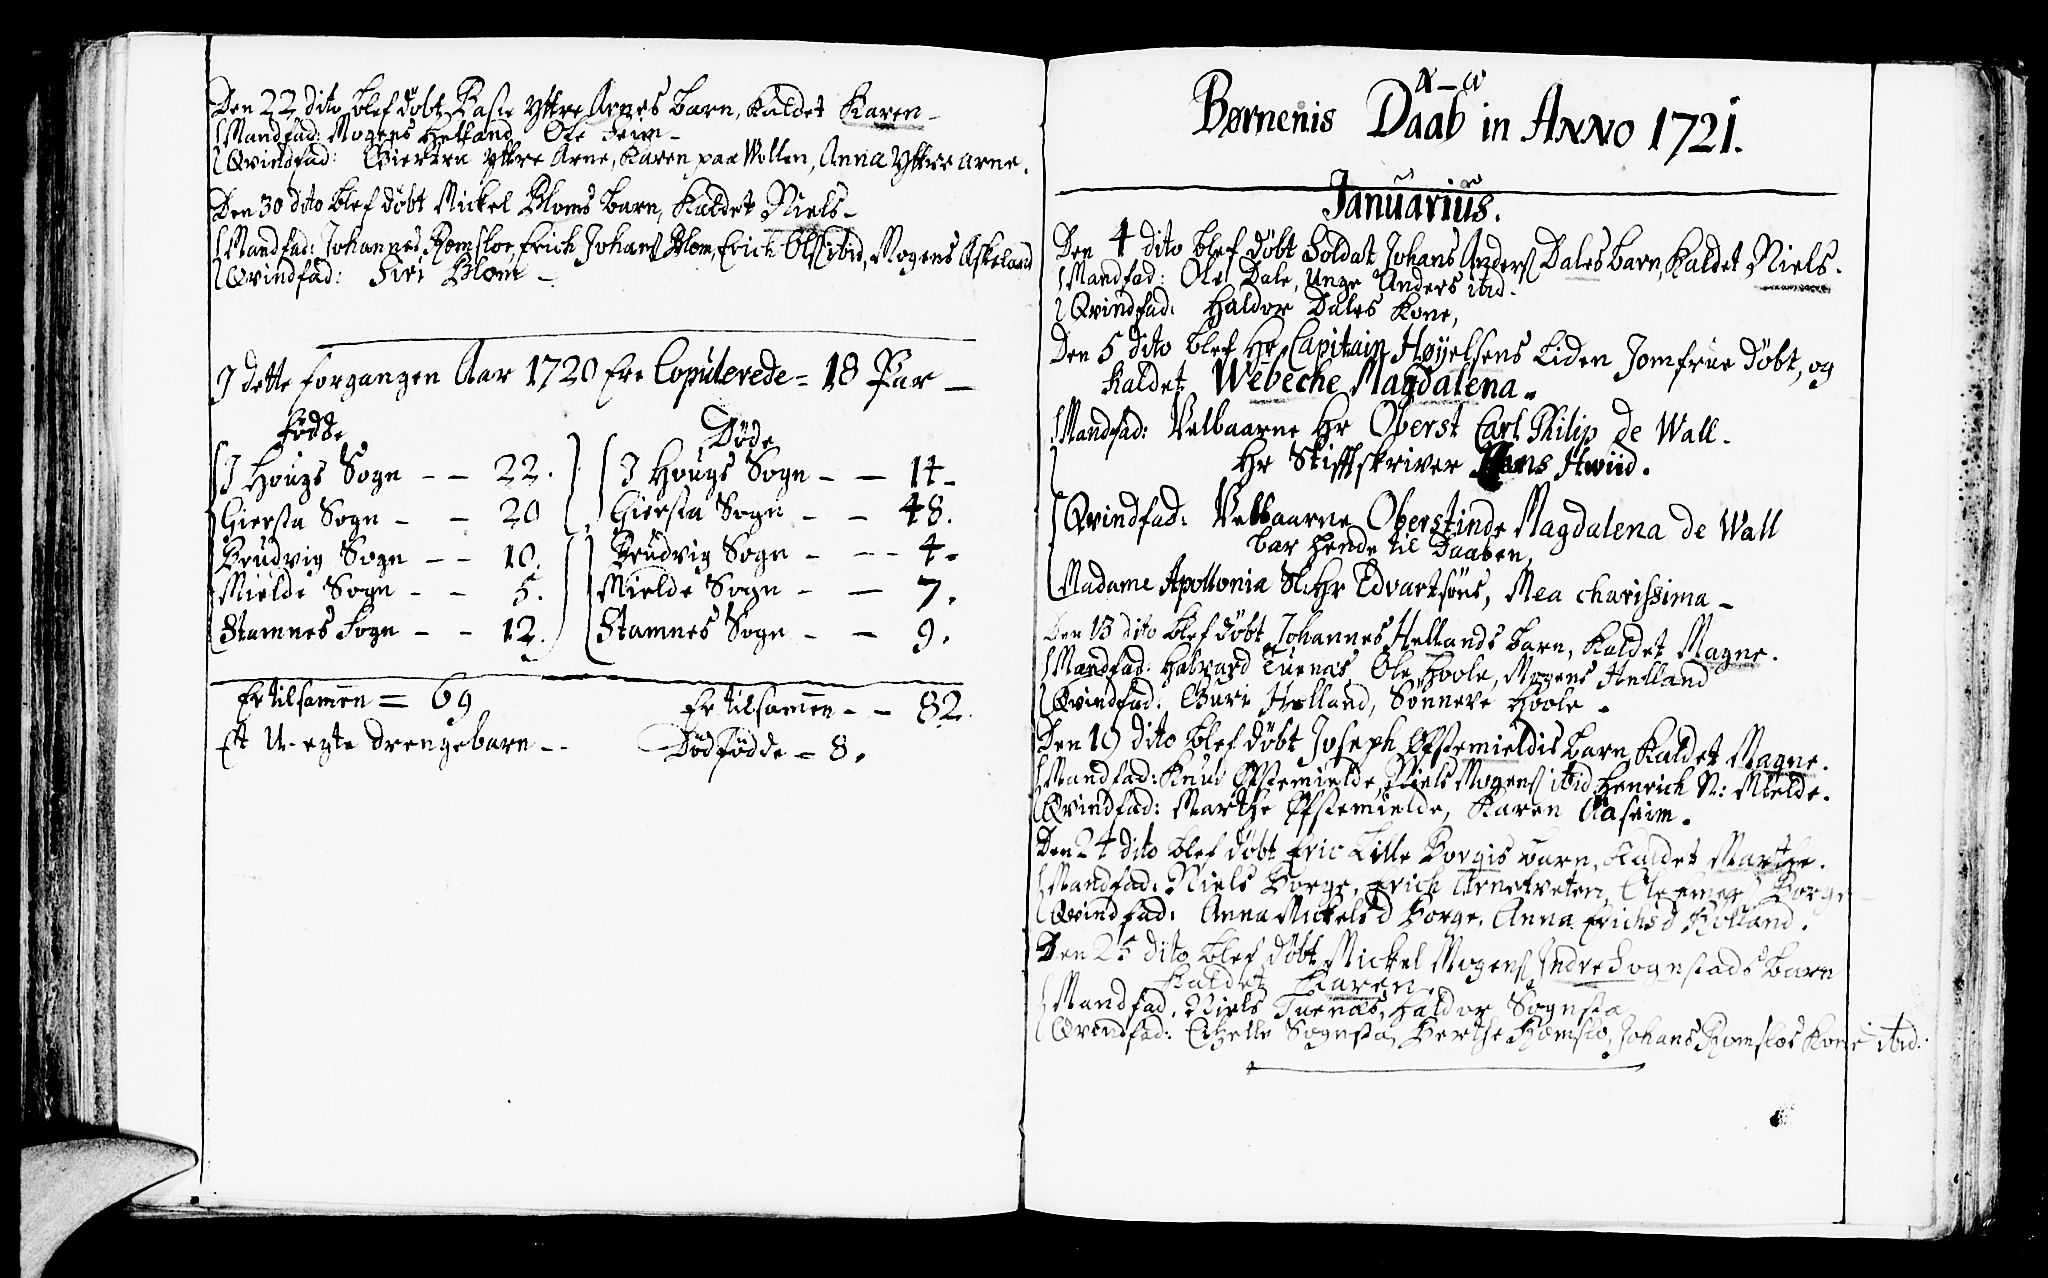 Den 22 dito blef døbt Baste Yttre Arnes barn, kaldet Karen
Mandfad: Mogens Helland, Ole
Qvindfad: Giertru Yttre Arne, Karen paa Wollen, Anna Yttre Arne.
Den 30 dito blef døbt Mickel Bloms barn, kaldet Niels
Mandfad: Johannes Romsloe, Erich Johans Blom, Erich Ols ibid, Mogens Askeland
Qvindfad: Siri Blom
I dette forgangen Aar 1720 ere Copulerede = 18 Par
Fødde
Døde
I Hougs Sogn - - 22.
I Hougs Sogn - - 14
Giersta Sogn - - 20
Giersta Sogn - - 48.
Brudvig Sogn - - 10.
Brudvig Sogn - - - 4
Mielde Sogn - - 5.
Mielde Sogn - - 7.
Stamnes Sogn - - 12.
Stamnes Sogn - - 9.
Er tilsamen = 69
Er tilsamen - - 82.
Et U-egte drengebarn - -
Dødfødde = 8.
α - ω
Børnenis Daab in ANNO 1721.
Januarius.
Den 4 dito blef døbt Soldat Johans Anders Dales barn, kaldet Niels.
Mandfad: Ole Dale, Unge Anders ibid.
Qvindfad: Haldor Dales Kone,
Den 5 dito blef Hr Capitain Høyelsens liden Jomfrue døbt, og
kaldet Webeche Magdalena.
Mandfad: Velbaarne Hr Oberst Carl Philip de Wall.
Hr Stiftskriver Hans Hwiid.
Qvindfad: Velbaarne Oberstinde Magdalena de Wall
bar hende til Daaben,
Madame Apollonia Sl. Hr Edvartsøns, Mea charissima
Den 13 dito blef døbt Johannes Hellands barn, kaldet Magne.
Mandfad: Halvard Tuenæs, Ole Hoole, Mogens Helland
Qvindfad: Guri Helland, Sønneve Hoole
Den 19 dito blef døbt Joseph Øfstemieldis barn kaldet Magne.
Mandfad: Knud Øfstemielde, Niels Mogens ibid, Henrich N: Mielde.
Qvindfad: Marthe Øfstemielde, Karen Aaseim.
Den 24 dito blef døbt Eric Lille Borgis barn, kaldet Marthe.
Mandfad: Niels Borge, Erich Arnetveten, Borge
Qvindfad: Anna Mickelsd Borge, Anna Erichsd Holland.
Den 25 dito blef døbt Mickel Mogens Indre Sognstads barn
kaldet Karen.
Mandfad. Niels Tuenæs, Haldor Sognsta
Qvindfad: Sognsta, Berthe Romslo, Johans Romsloes Kone ibid.